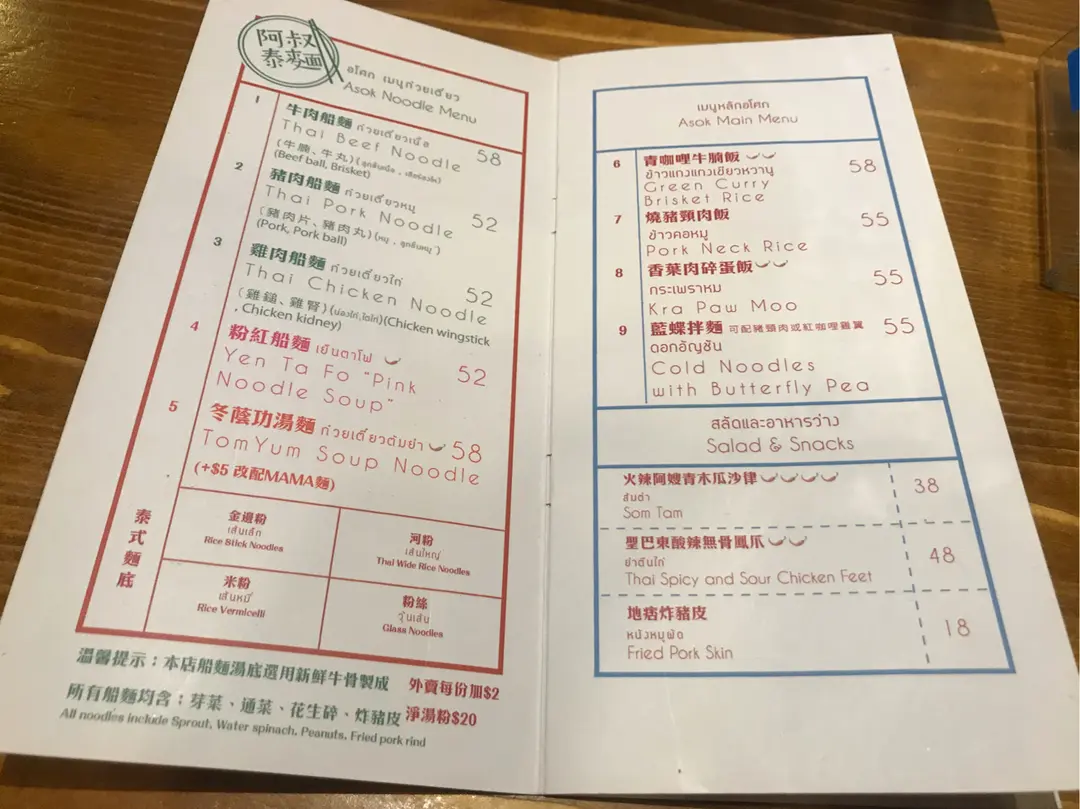 阿叔
泰麥麵
อโศก เมนูก๋วยเตี๋ยว
Asok Noodle Menu
1 牛肉船麵 ก๋วยเตี๋ยวเนื้อ
Thai Beef Noodle 58
(牛腩、牛丸)(ลูกชิ้นเนื้อ , เสือร้องไห้)
(Beef ball, Brisket)
2 豬肉船麵 ก๋วยเตี๋ยวหมู
Thai Pork Noodle 52
(豬肉片、豬肉丸)(หมู , ลูกชิ้นหมู)
(Pork, Pork ball)
3 雞肉船麵 ก๋วยเตี๋ยวไก่
Thai Chicken Noodle 52
(雞鎚、雞腎)(น่องไก่,ไตไก่)(Chicken wingstick
, Chicken kidney)
4 粉紅船麵 เย็นตาโฟ
Yen Ta Fo "Pink 52
Noodle Soup"
5 冬蔭功湯麵 ก๋วยเตี๋ยวต้มยำ 58
TomYum Soup Noodle
(+$5 改配MAMA麵)
泰式麵底
金邊粉
เส้นเล็ก
Rice Stick Noodles
河粉
เส้นใหญ่
Thai Wide Rice Noodles
米粉
เส้นหมี่
Rice Vermicelli
粉絲
วุ้นเส้น
Glass Noodles
溫馨提示：本店船麵湯底選用新鮮牛骨製成 外賣每份加$2
所有船麵均含：芽菜、通菜、花生碎、炸豬皮 淨湯粉$20
All noodles include Sprout, Water spinach, Peanuts, Fried pork rind
เมนูหลักอโศก
Asok Main Menu
6 青咖哩牛腩飯 58
ข้าวแกงแกงเขียวหวานู
Green Curry
Brisket Rice
7 燒豬頸肉飯 55
ข้าวคอหมู
Pork Neck Rice
8 香葉肉碎蛋飯 55
กระเพราหม
Kra Paw Moo
9 藍蝶拌麵 可配豬頸肉或紅咖哩雞翼 55
ดอกอัญชัน
Cold Noodles
with Butterfly Pea
สลัดและอาหารว่าง
Salad & Snacks
火辣阿嫂青木瓜沙律 38
ส้มตำ
Som Tam
聖巴東酸辣無骨鳳爪 48
ยำตีนไก่
Thai Spicy and Sour Chicken Feet
地痞炸豬皮 18
หนังหมูผัด
Fried Pork Skin